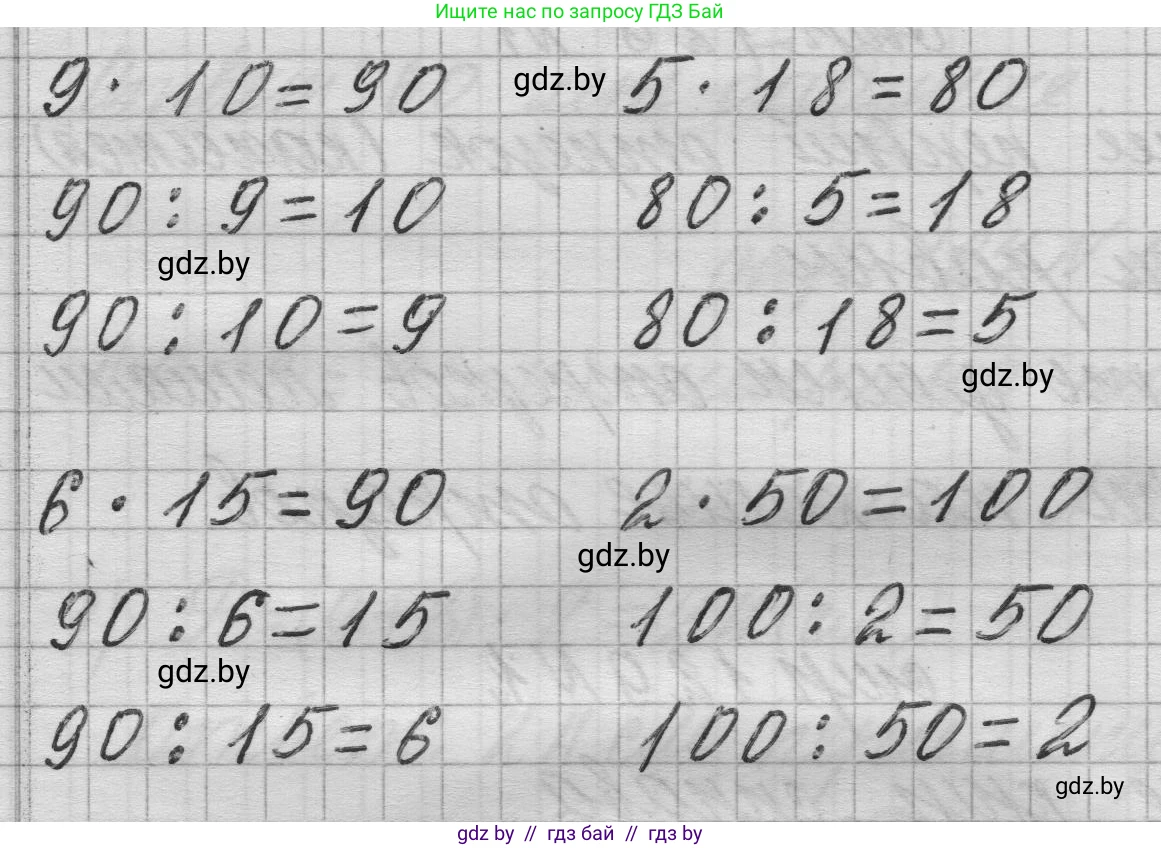 Ищите нас по запросу ГДЗ Бай
9 · 10 = 90 gdz.by 5 · 18 = 80
90 : 9 = 10 80 : 5 = 18
gdz.by
90 : 10 = 9 80 : 18 = 5
gdz.by
6 · 15 = 90 2 · 50 = 100
gdz.by
90 : 6 = 15 100 : 2 = 50
gdz.by
90 : 15 = 6 100 : 50 = 2
gdz.by
gdz by // гдз бай // гдз by